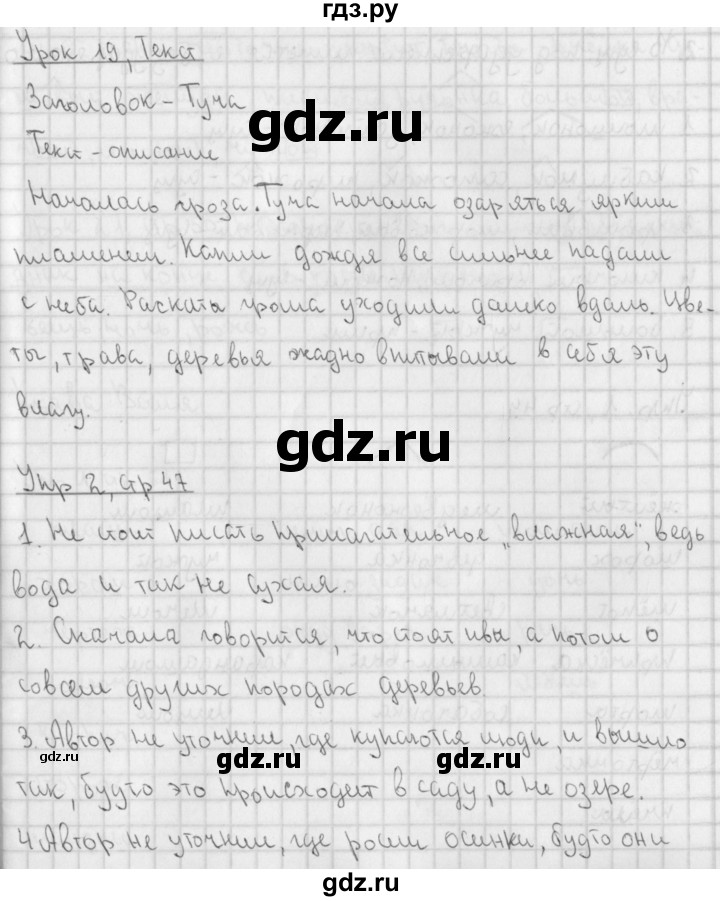 гдз.ру
Урок 19, Текст
Заголовок - Туча
gdz.ru
Текст - описание
Началась гроза. Туча начала озаряться ярким
пламенем. Капли дождя все сильнее падали
с неба. Раскаты грома уходили далеко вдаль. Цве-
ты, трава, деревья жадно впитывали в себя эту
влагу.
gdz.ru
Упр 2, стр 47
1. Не стоит писать прилагательное "влажная", ведь
вода и так не сухая.
gdz.ru
2. Сначала говорится, что стоят ивы, а потом о
совсем других породах деревьев.
3. Автор не уточнил, где купаются люди, и вышло
gdz.ru gdz.ru gdz.ru
так, будто это происходит в саду, а не озере.
4 Автор не уточнил, где росли осинки, будто они
gdz.ru